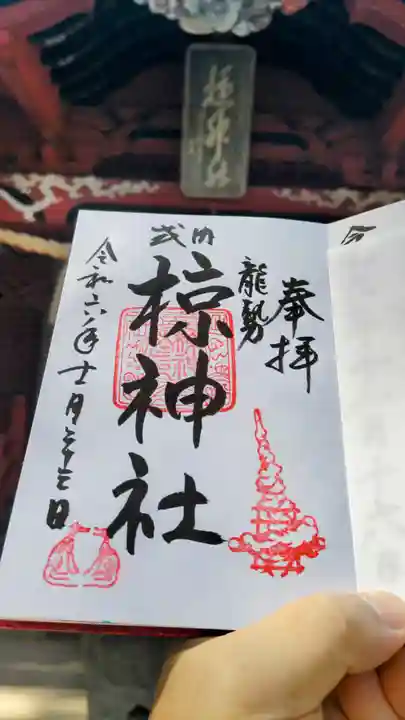 奉拝
龍勢
式内
椋神社
令和六年十一月二十三日
椋神社